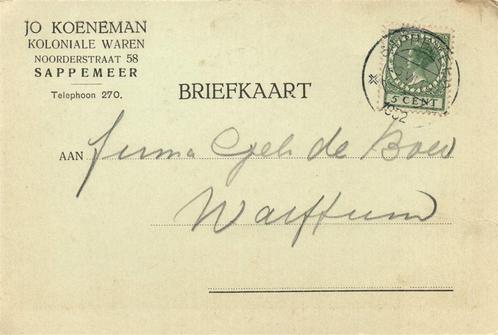 JO KOENEMAN
KOLONIALE WAREN
NOORDERSTRAAT 58
SAPPEMEER
Telephoon 270.
BRIEFKAART
5 CENT
1932
AAN Firma Gebr. de Boer
Warffum